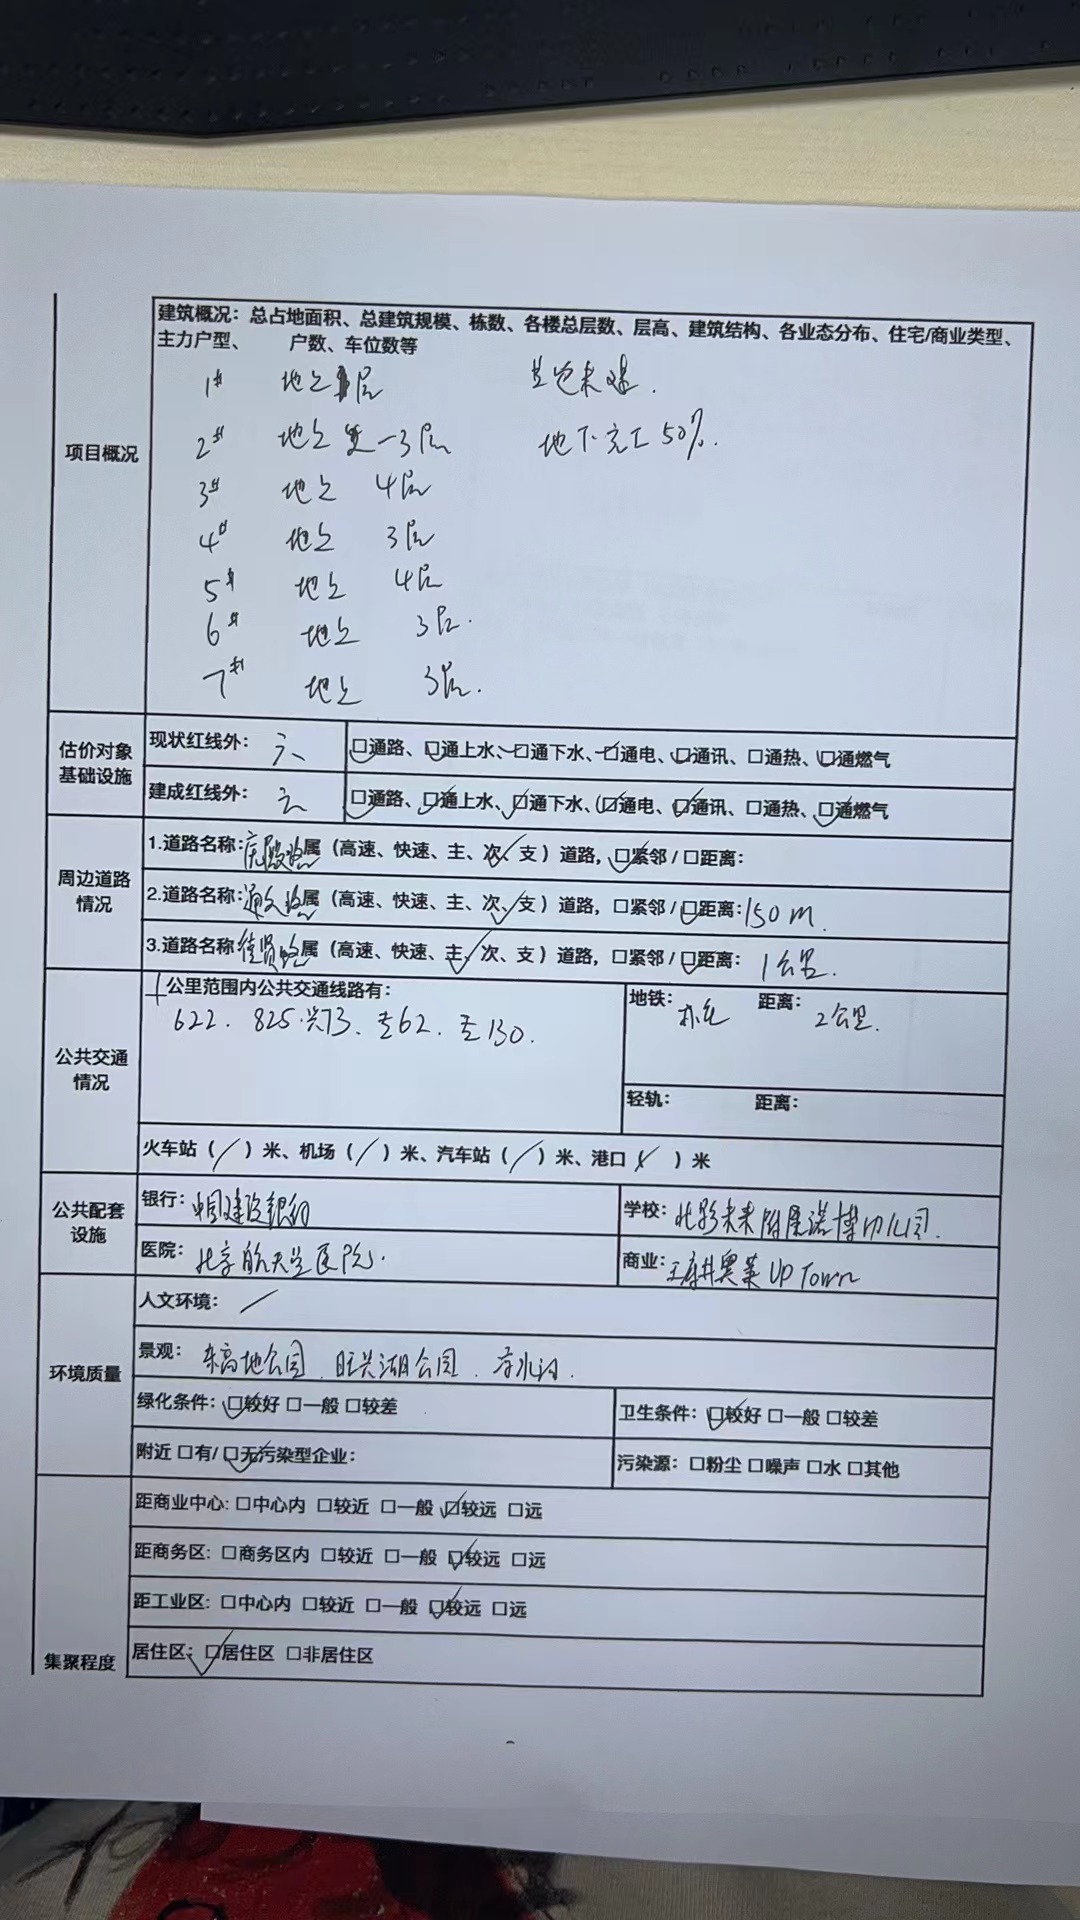 建筑概况：总占地面积、总建筑规模、栋数、各楼总层数、层高、建筑结构、各业态分布、住宅/商业类型、
主力户型、 户数、车位数等
项目概况
1# 地上 层
2# 地上 一3层 地下完工50%.
3# 地上 4层
4# 地上 3层
5# 地上 4层
6# 地上 3层.
7# 地上 3层.
估价对象
基础设施
现状红线外：六 □通路、□通上水、□通下水、□通电、□通讯、□通热、□通燃气
建成红线外：六 □通路、□通上水、□通下水、□通电、□通讯、□通热、□通燃气
周边道路
情况
1.道路名称：属（高速、快速、主、次、支）道路，□紧邻/□距离：
2.道路名称：通久路属（高速、快速、主、次、支）道路，□紧邻/□距离：150m.
3.道路名称 德贤路属（高速、快速、主、次、支）道路，□紧邻/□距离：1公里.
公共交通
情况
公里范围内公共交通线路有：
622. 825. 兴13. 62. 130.
地铁： 距离：2公里.
轻轨： 距离：
火车站（/）米、机场（/）米、汽车站（/）米、港口 / ）米
公共配套
设施
银行：中国建设银行 学校：北影未来附属诺博幼儿园.
医院：北京航天总医院. 商业：王府井奥莱UP Town
环境质量
人文环境：/
景观：东高地公园、旺兴湖公园、
绿化条件：□较好 □一般 □较差 卫生条件：□较好 □一般 □较差
附近 □有/ □无污染型企业： 污染源：□粉尘 □噪声 □水 □其他
集聚程度
距商业中心: □中心内 □较近 □一般 □较远 □远
距商务区: □商务区内 □较近 □一般 □较远 □远
距工业区: □中心内 □较近 □一般 □较远 □远
居住区: □居住区 □非居住区